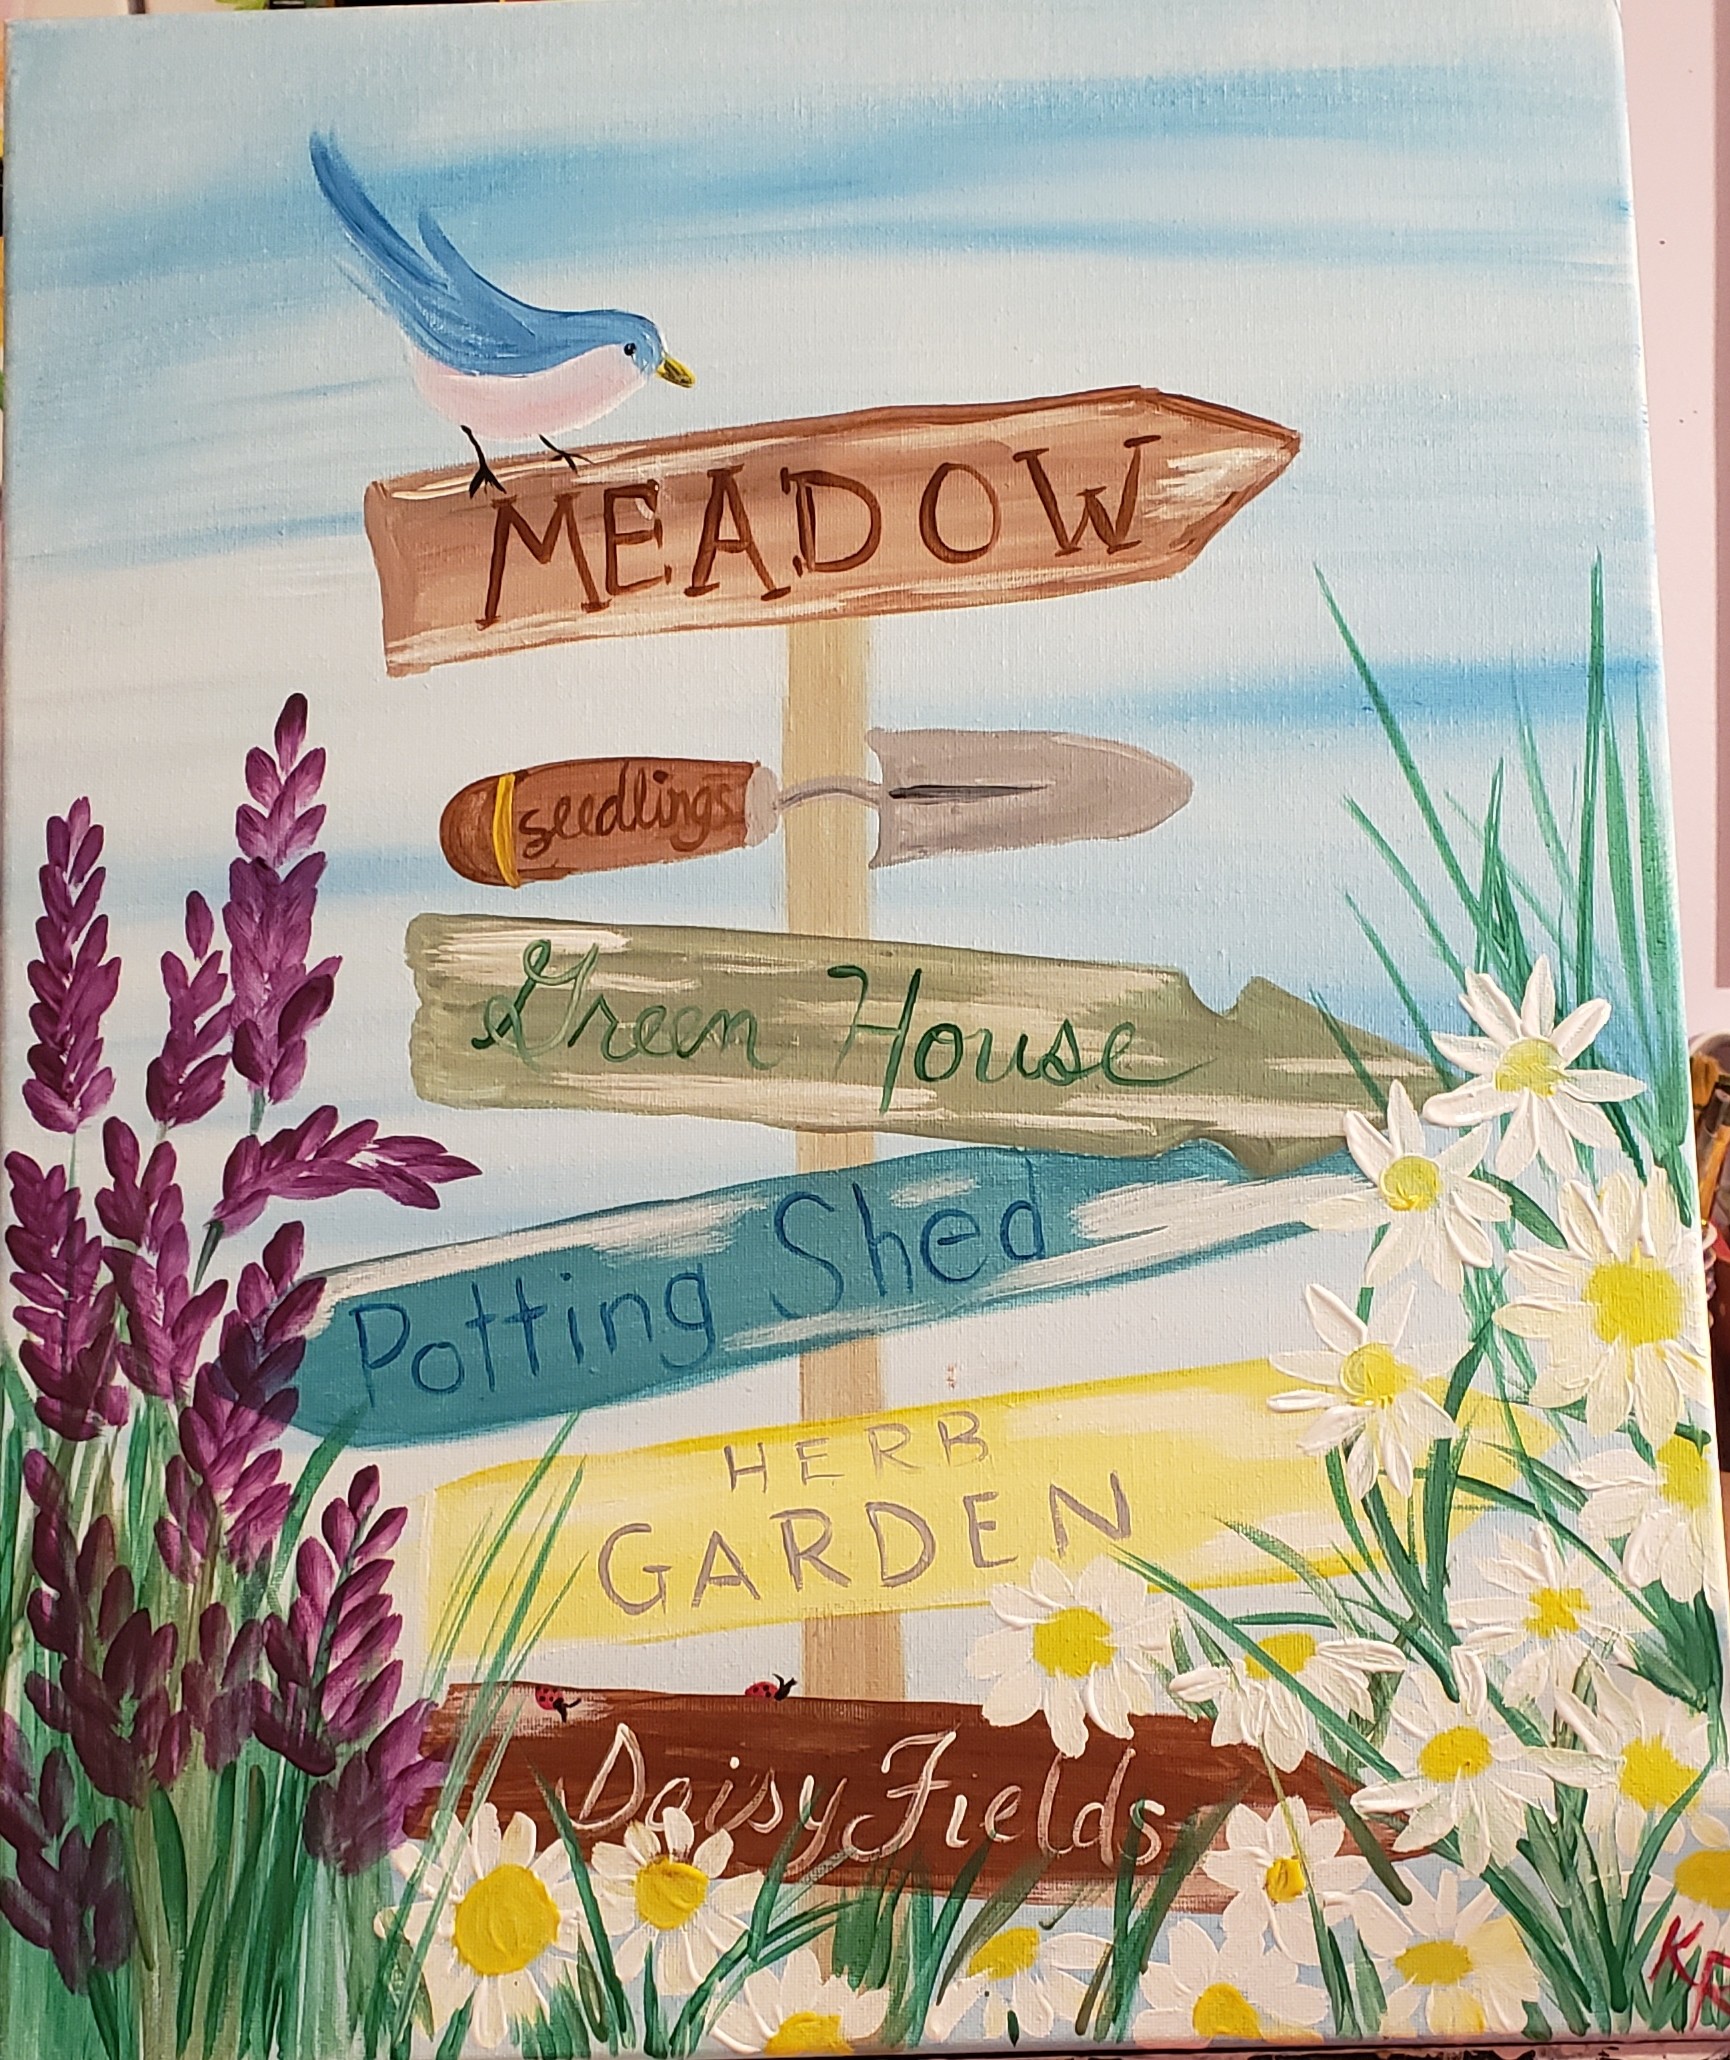 MEADOW
seedlings
Green House
Potting Shed
HERB
GARDEN
Daisy Fields
KR